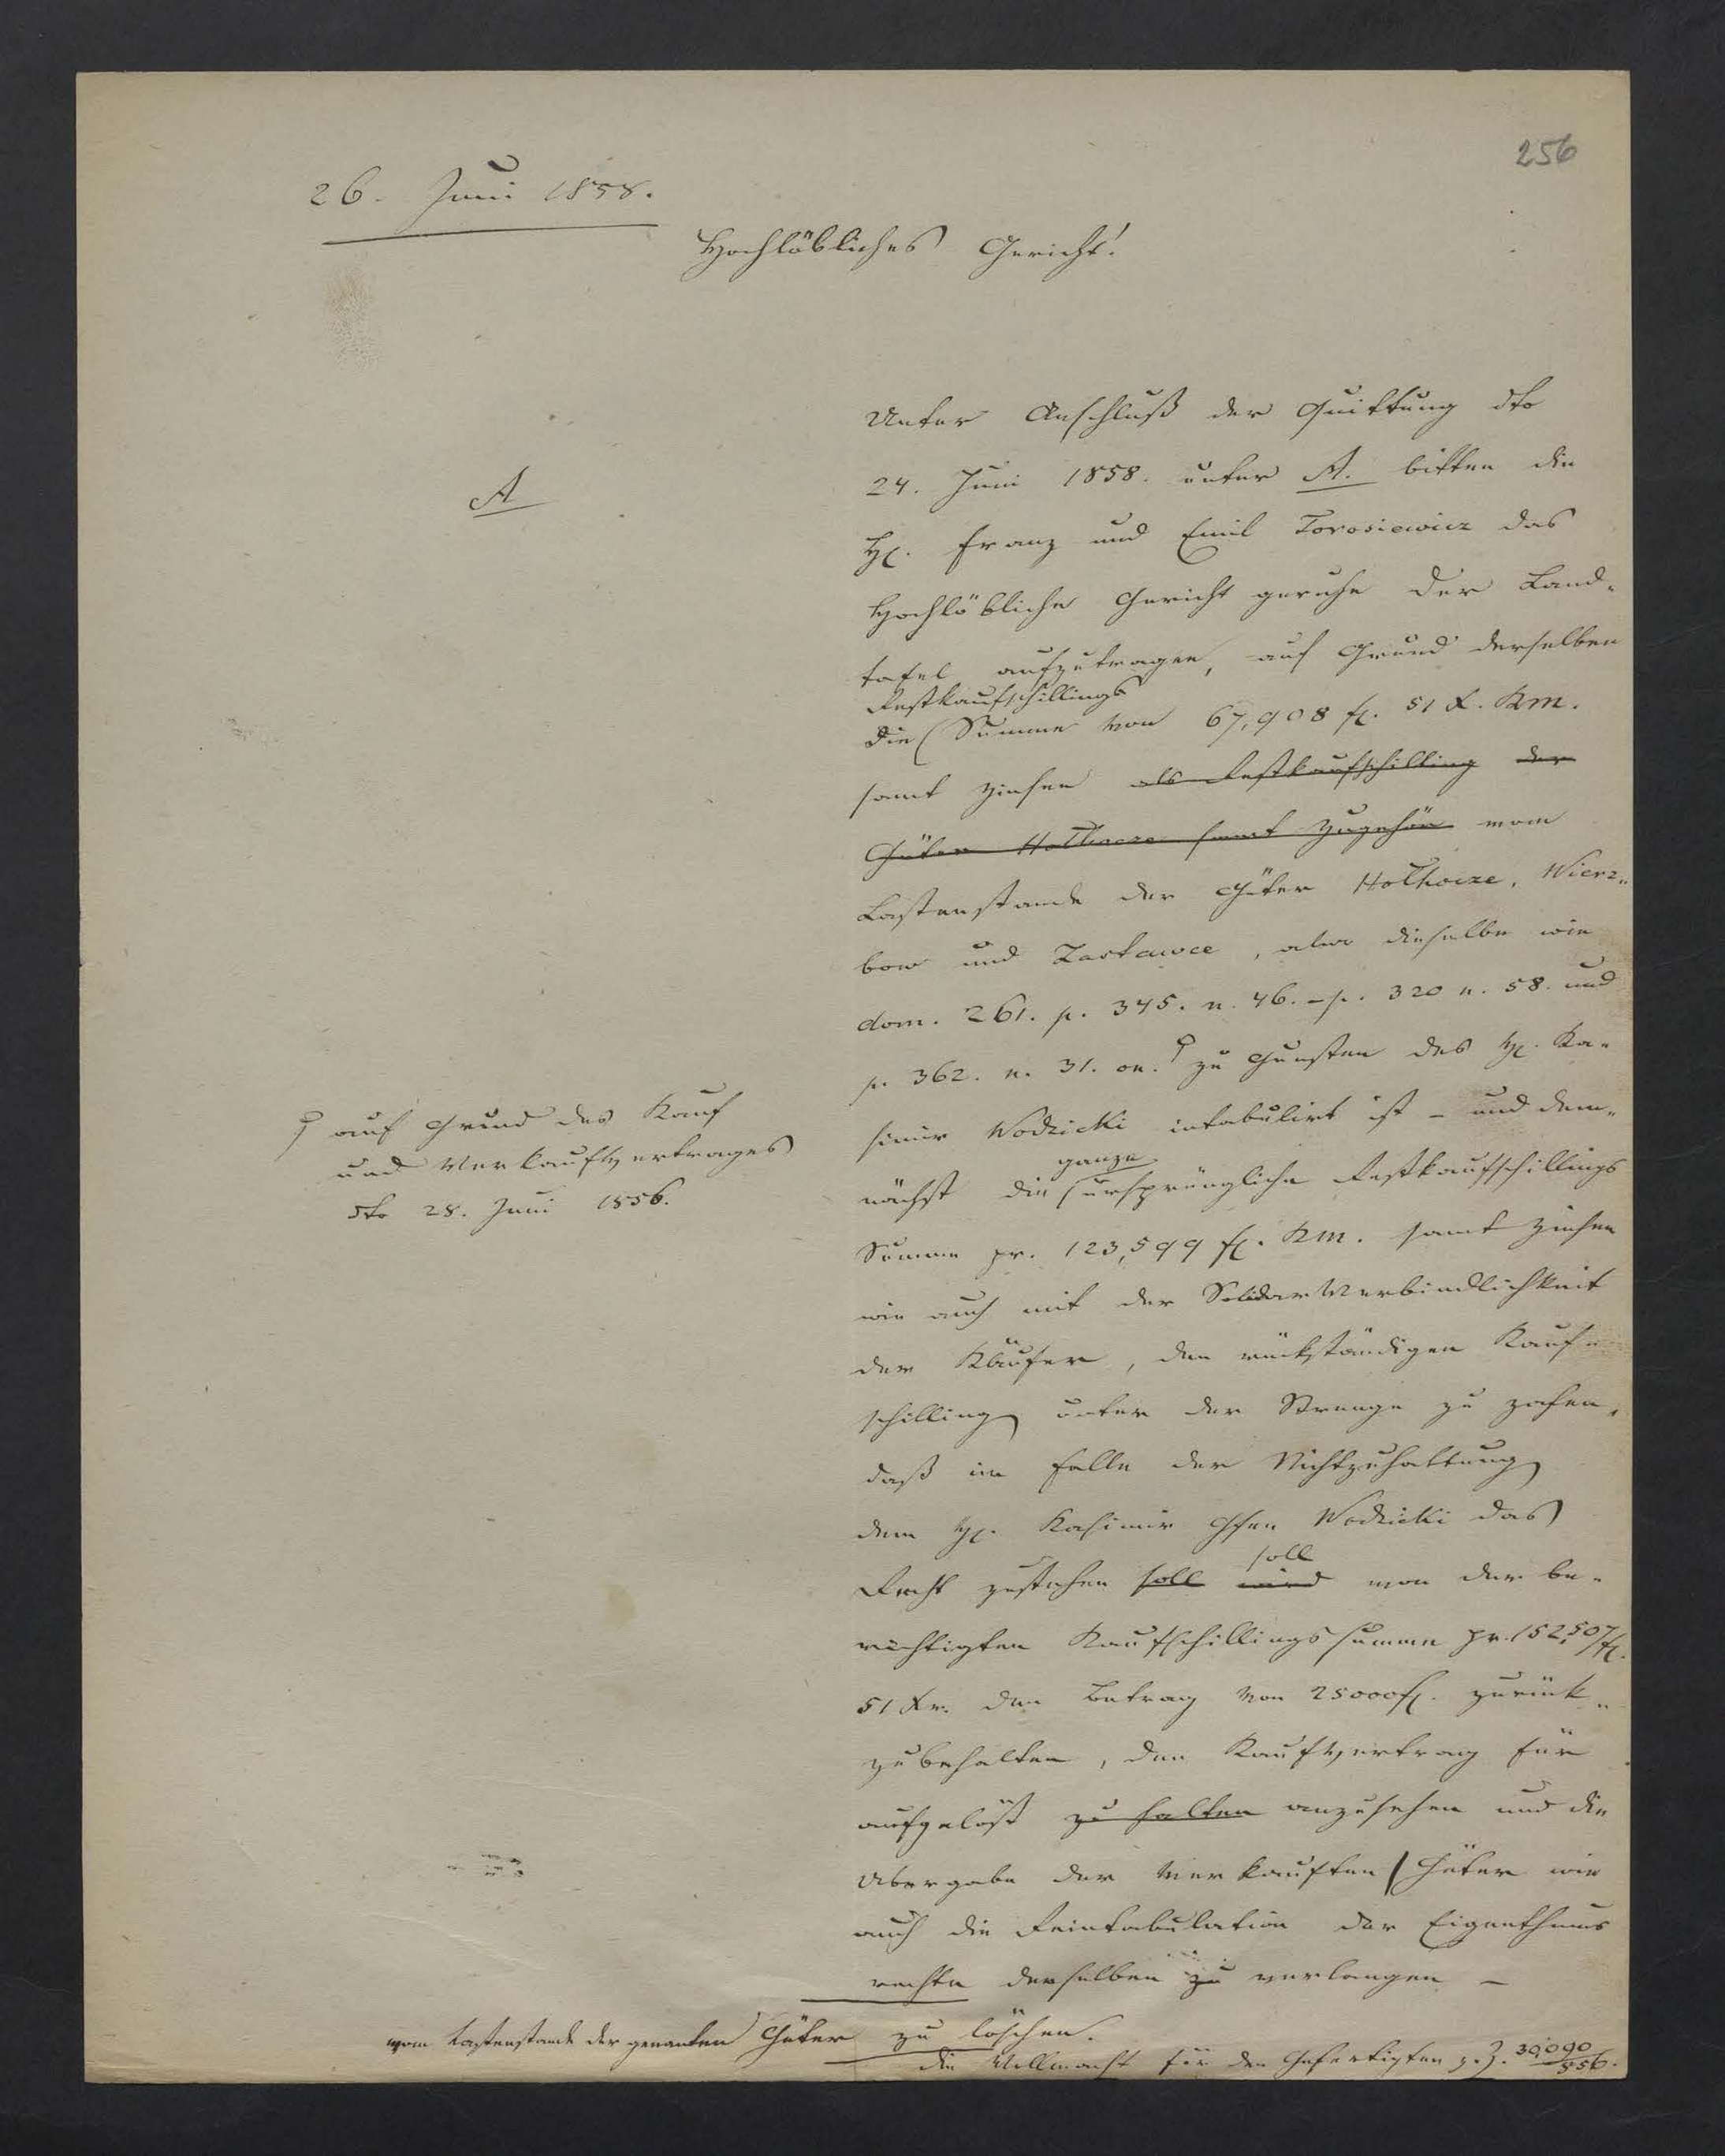 256
26. Juni 1858.
Hochlöbliches Gericht!
Unter Anschluß der Quittung dto
24. Juni 1858. unter A. bitten die
A
H. Franz und Emil Torosiewicz das
Hochlöbliche Gericht geruhe der Land-
tafel aufzutragen, auf Grund derselben
Restkaufschillings
die Summe von 67,908 f. 51 X. KM.
samt Zinsen als Restkaufschilling der
Güter Hołhocze samt Zugehör vom
Lastenstande der Güter Hołhocze, Wierz-
bow und Zastawce, als dieselbe wie
dom. 261. p. 345. n. 46. - p. 320 n. 58. und
p. 362. n. 31. on. zu Gunsten des H. Ka-
auf Grund des Kauf
und Verkaufvertrages
dto 28. Juni 1856.
simir Wodzicki intabulirt ist - und dem-
ganze
nächst die ursprüngliche Restkaufschillings
Summe pr. 123,599 f. KM. samt Zinsen
wie auch mit der Solidar Verbindlichkeit
der Käufer, den rückständigen Kauf-
schilling unter der Strenge zu zahlen,
daß im Falle der Nichtzuhaltung
dem H. Kasimir Gfen Wodzicki das
soll
Recht zustehen soll wird von der be-
richtigten Kaufschillingssumme pr. 152,507 f.
51 Xr. den Betrag von 25000 f. zurück-
zubehalten, den Kaufvertrag für
aufgelöst zu halten anzusehen und die
Übergabe der verkauften Güter wie
auch die Reintabulation der Eigenthums
rechte derselben zu verlangen -
vom Lastenstande der genanten Güter zu löschen.
die Vollmacht für den Gefertigten z. Z. 30,090/856.